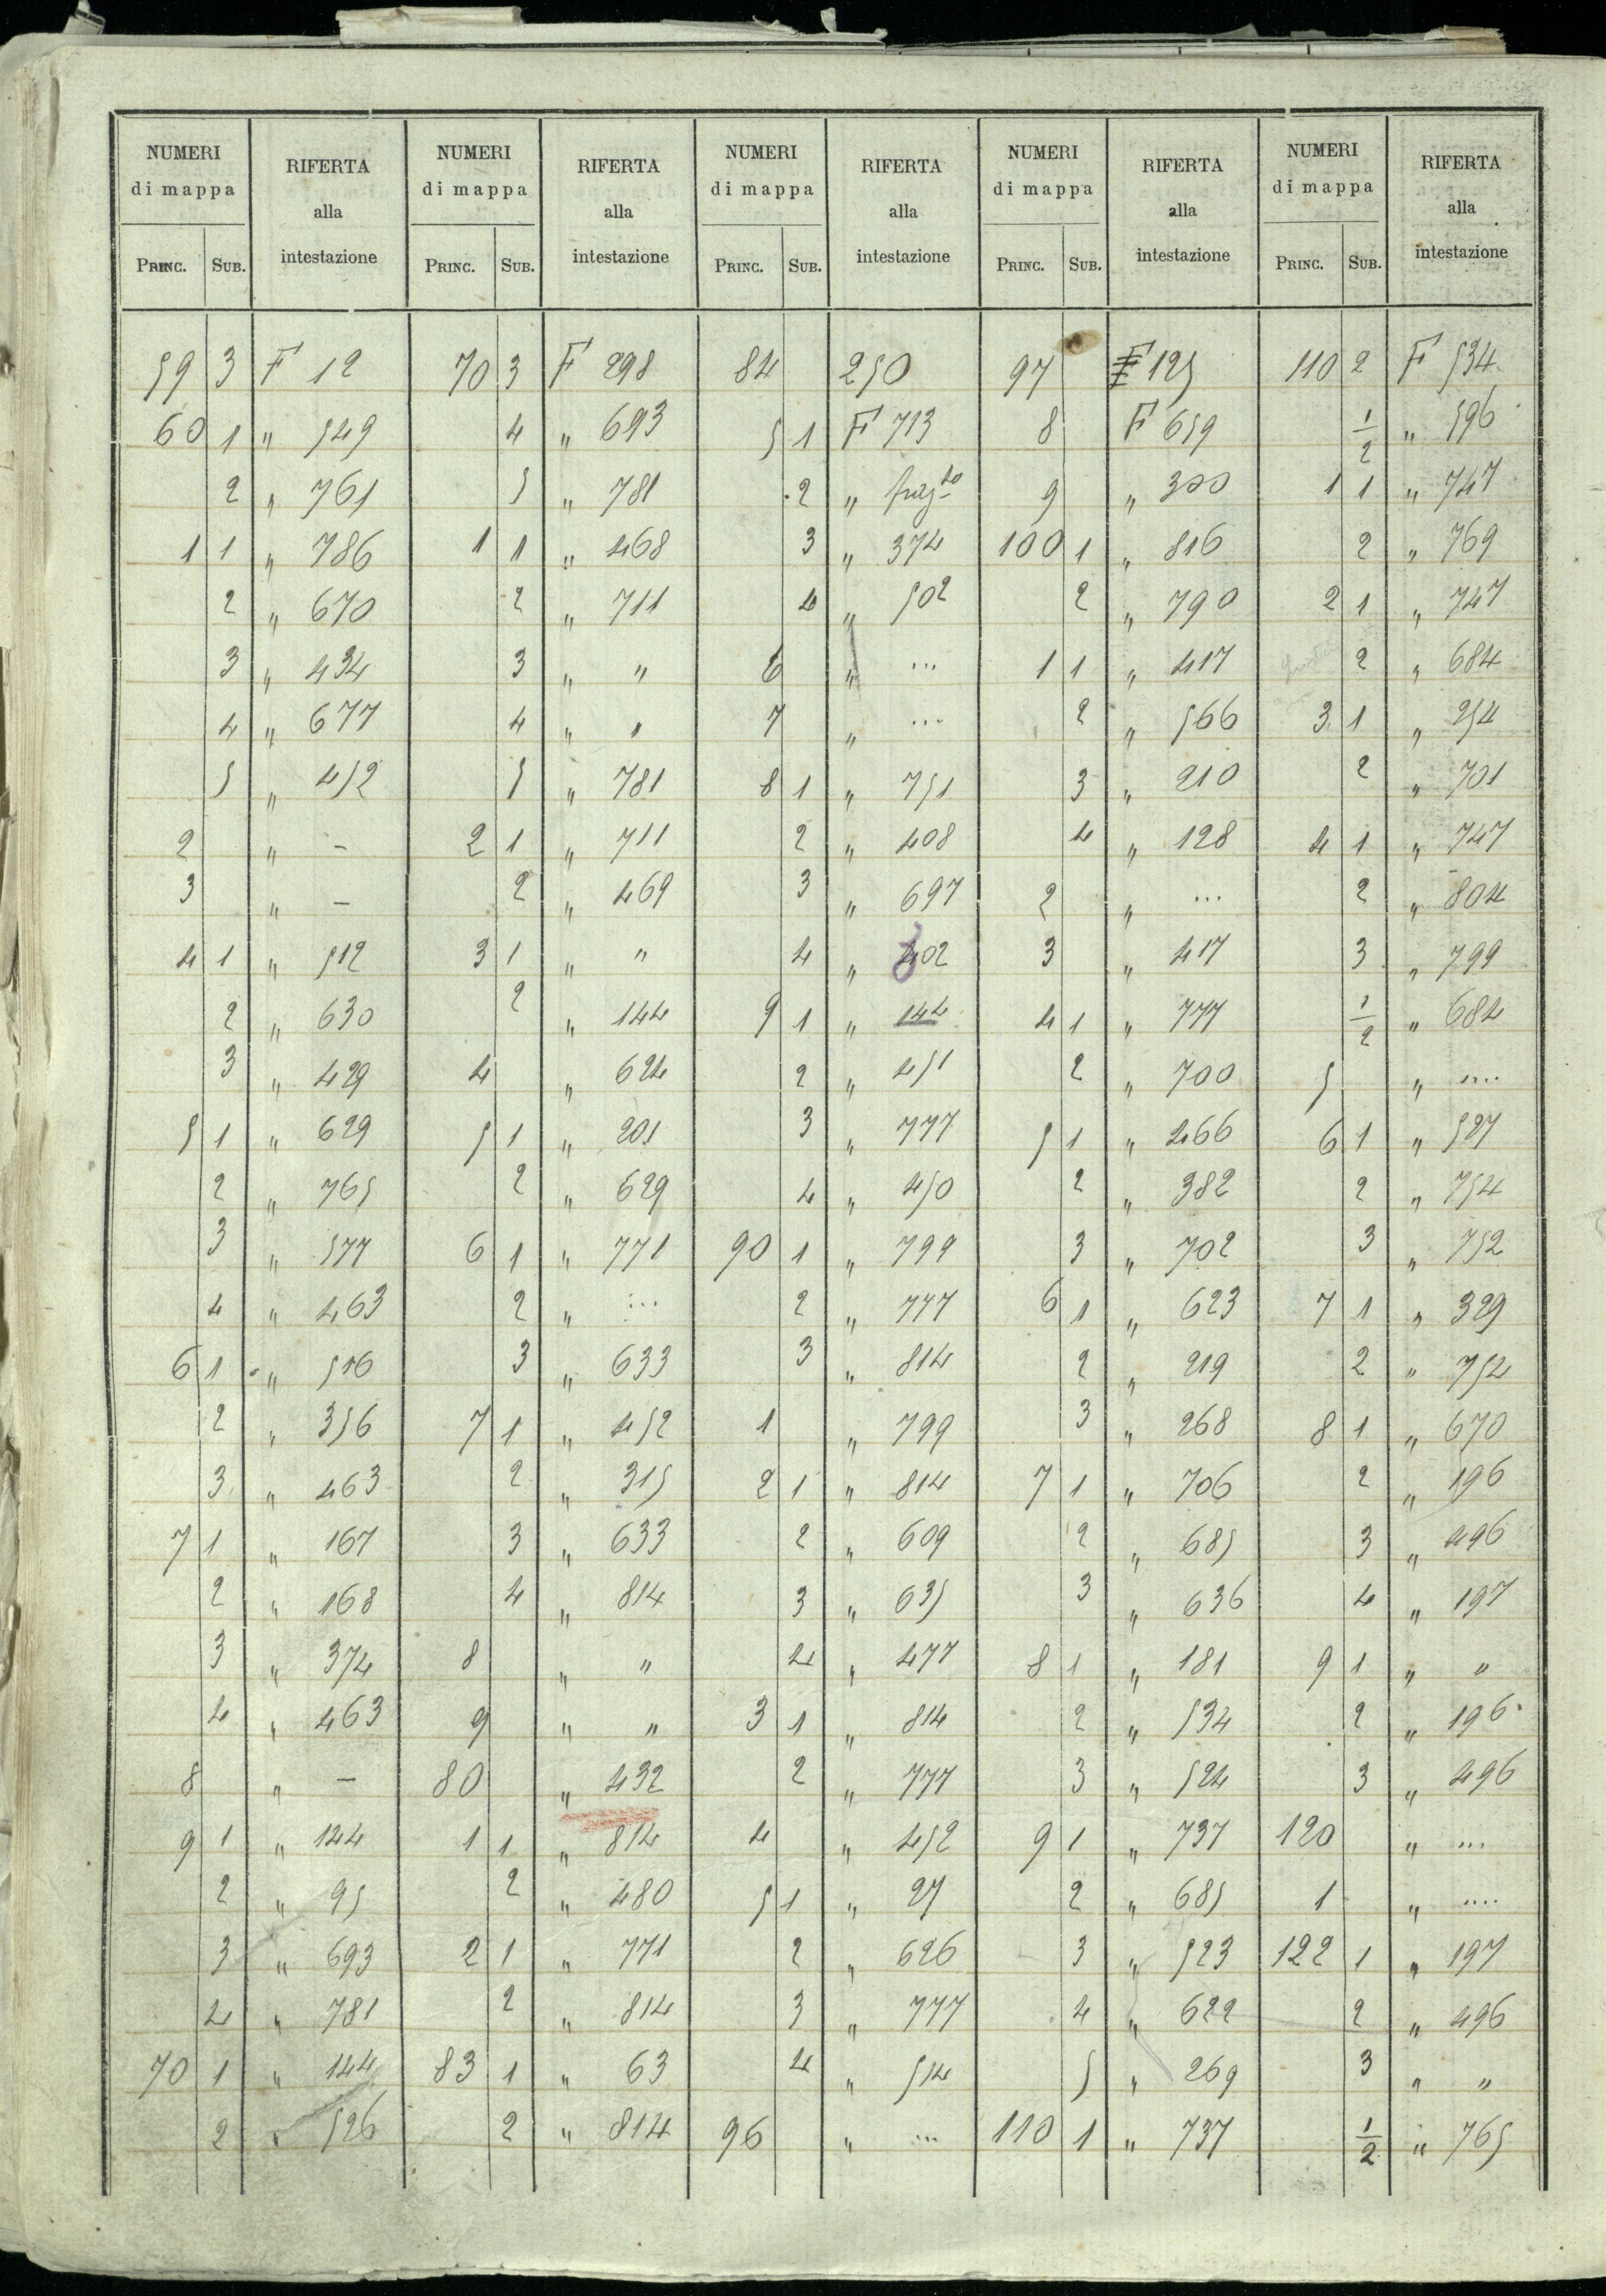 NUMERI di mappa RIFERTA alla intestazione NUMERI di mappa RIFERTA alla intestazione NUMERI di mappa RIFERTA alla intestazione NUMERI di mappa RIFERTA alla intestazione NUMERI di mappa RIFERTA alla intestazione
PRINC. SUB. PRINC. SUB. PRINC. SUB. PRINC. SUB. PRINC. SUB.
59 3 F 12 70 3 F 298 84 250 97 F 125 110 2 F 534
60 1 " 549 4 " 693 5 1 F 713 8 F 659 1/2 " 596
2 " 761 5 " 781 2 " 9 " 300 1 1 " 747
1 1 " 786 1 1 " 468 3 " 374 100 1 " 816 2 " 769
2 " 670 2 " 711 4 " 502 2 " 790 2 1 " 747
3 " 434 3 " " 6 " ... 1 1 " 417 2 " 684
4 " 677 4 " " 7 " ... 2 " 566 3 1 " 254
5 " 452 5 " 781 8 1 " 751 3 " 210 2 " 701
2 " - 2 1 " 711 2 " 408 4 " 128 4 1 " 747
3 " - 2 " 469 3 " 697 2 " ... 2 " 804
4 1 " 512 3 1 " " 4 " 3 " 417 3 " 799
2 " 630 2 " 144 9 1 " 144 4 1 " 777 1/2 " 684
3 " 429 4 " 624 2 " 451 2 " 700 5 " ....
5 1 " 629 5 1 " 201 3 " 777 5 1 " 466 6 1 " 527
2 " 765 2 " 629 4 " 450 2 " 382 2 " 754
3 " 577 6 1 " 771 90 1 " 799 3 " 702 3 " 752
4 " 463 2 " ... 2 " 777 6 1 " 623 7 1 " 329
6 1 " 516 3 " 633 3 " 814 2 " 219 2 " 754
2 " 356 7 1 " 452 1 " 799 3 " 268 8 1 " 670
3 " 463 2 " 315 2 1 " 814 7 1 " 706 2 " 196
7 1 " 167 3 " 633 2 " 609 2 " 685 3 " 496
2 " 168 4 " 814 3 " 635 3 " 636 4 " 197
3 " 374 8 " " 4 " 477 8 1 " 181 9 1 " "
4 " 463 9 " " 3 1 " 814 2 " 534 2 " 196
8 " - 80 " 432 2 " 777 3 " 524 3 " 496
9 1 " 144 1 1 " 814 4 " 452 9 1 " 737 120 " ...
2 " 95 2 " 480 5 1 " 27 2 " 685 1 " ....
3 " 693 2 1 " 771 2 " 626 3 " 523 122 1 " 197
4 " 781 2 " 814 3 " 777 4 " 622 2 " 496
70 1 " 144 83 1 " 63 4 " 514 5 " 269 3 " "
2 " 526 2 " 814 96 " ... 110 1 " 737 1/2 " 765